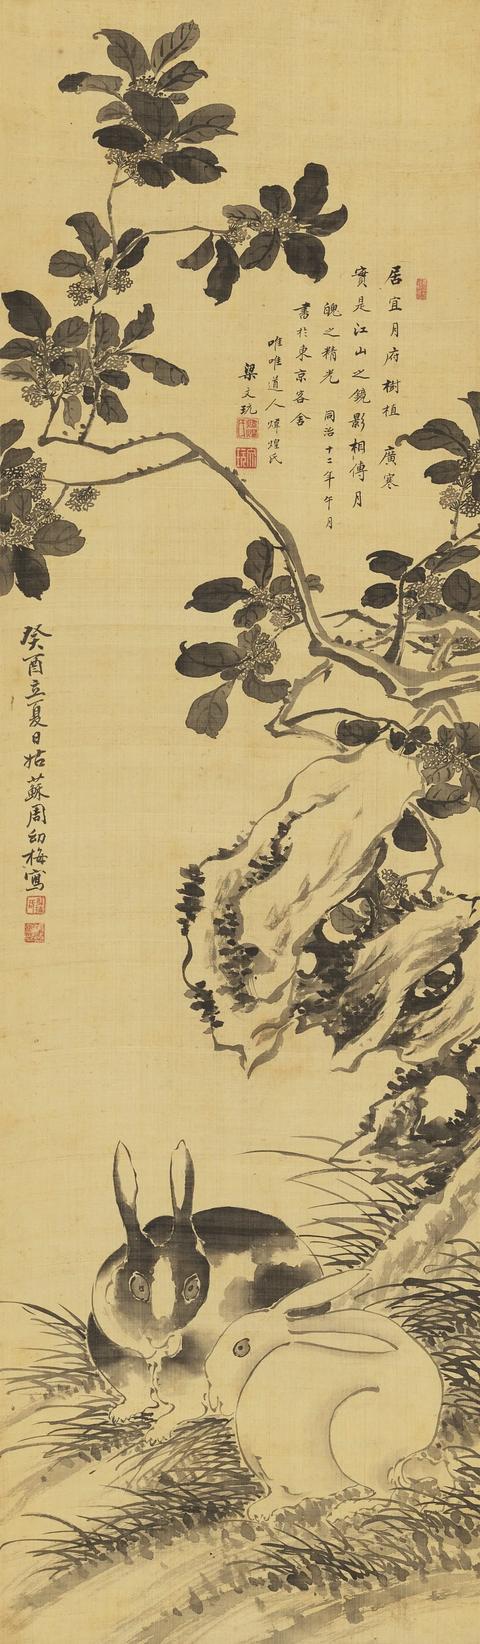 居宜月府樹植　廣寒
實是江山之鏡影相傳月
魄之精光　同治十二年午月
書於東京客舍
唯唯道人煒煌氏
梁文玩
癸酉立夏日姑蘇周幼梅寫